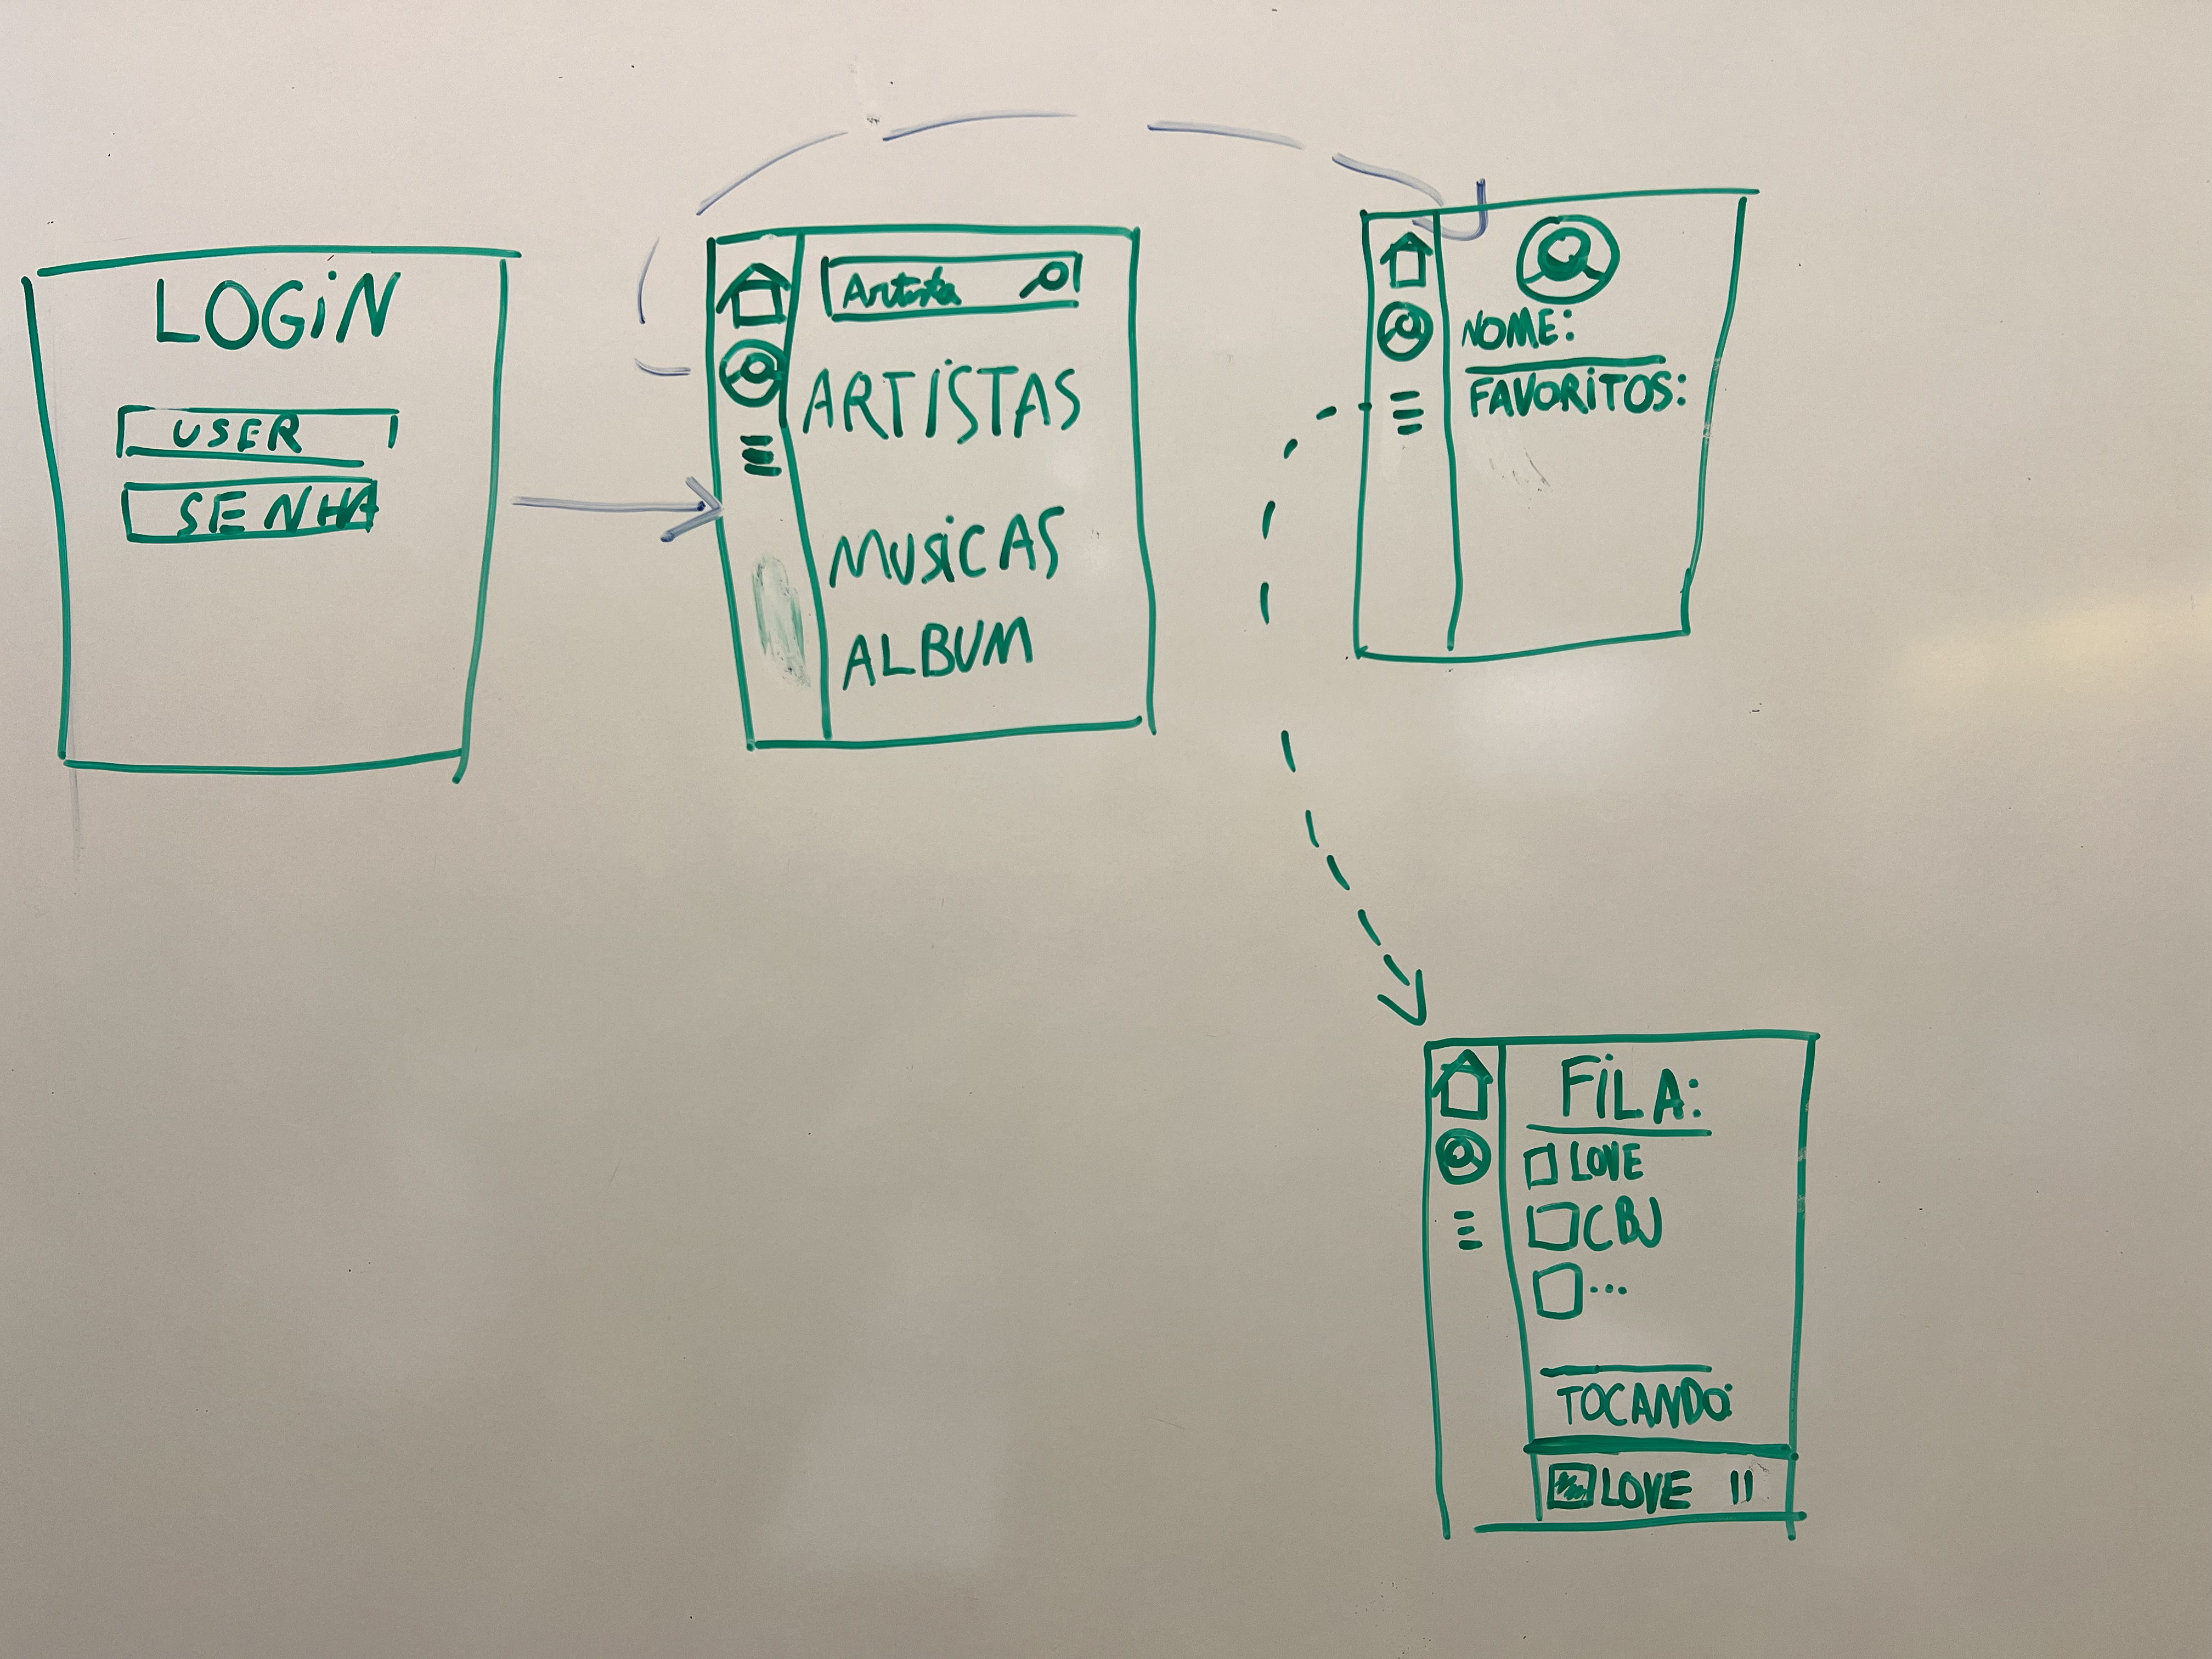 LOGiN
USER
SENHA
Artista
ARTiSTAS
MUSiCAS
ALBUM
NOME:
FAVORiTOS:
FiLA:
LOVE
CBJ
...
TOCANDO:
LOVE